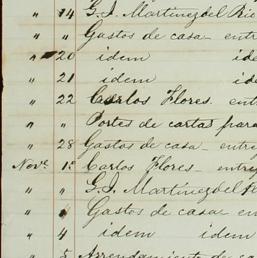 " 14 G. I. Martinez del Rio
" " Gastos de casa entre
" 20 idem ide
" 21 idem ide
" 22 Carlos Flores. entr
" " Portes de cartas para
" 28 Gastos de casa entre
Novr. 1º Carlos Flores entre
" " G. I. Martinez del R
" Gastos de casa en
" 4 idem idem
" 5 Arrendamiento de ca